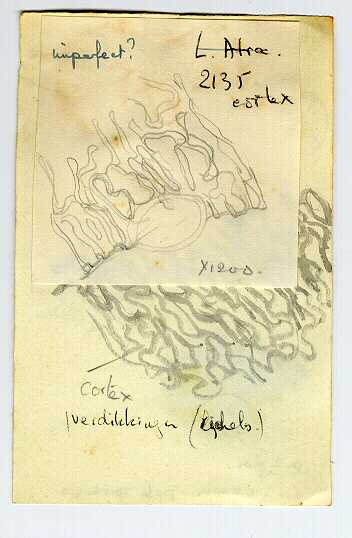 imperfect?
L. Atra.
2135
cortex
X1200.
cortex
verdikkingen (